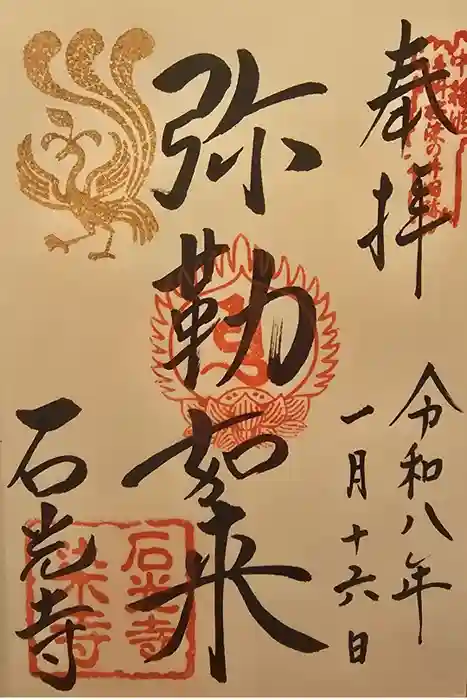 奉拝
令和八年
一月十六日
弥勒如来
石光寺
石光寺
染寺